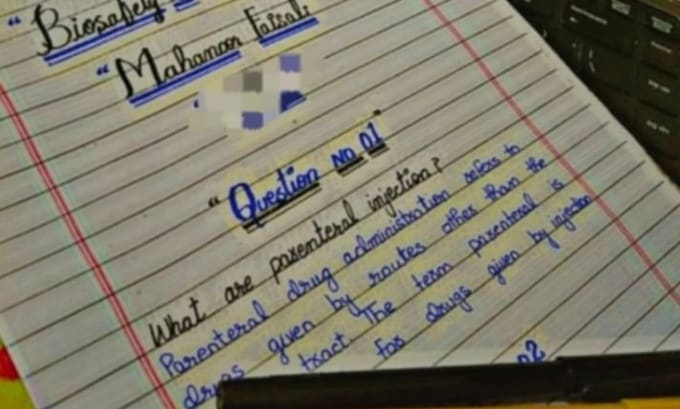 "Biosafety
"Mahanoor Faisal"
"Question No 01"
What are parenteral injection?
Parenteral drug administration refers to
drugs given by routes other than the
tract The term parenteral is
for drugs given by injection
02